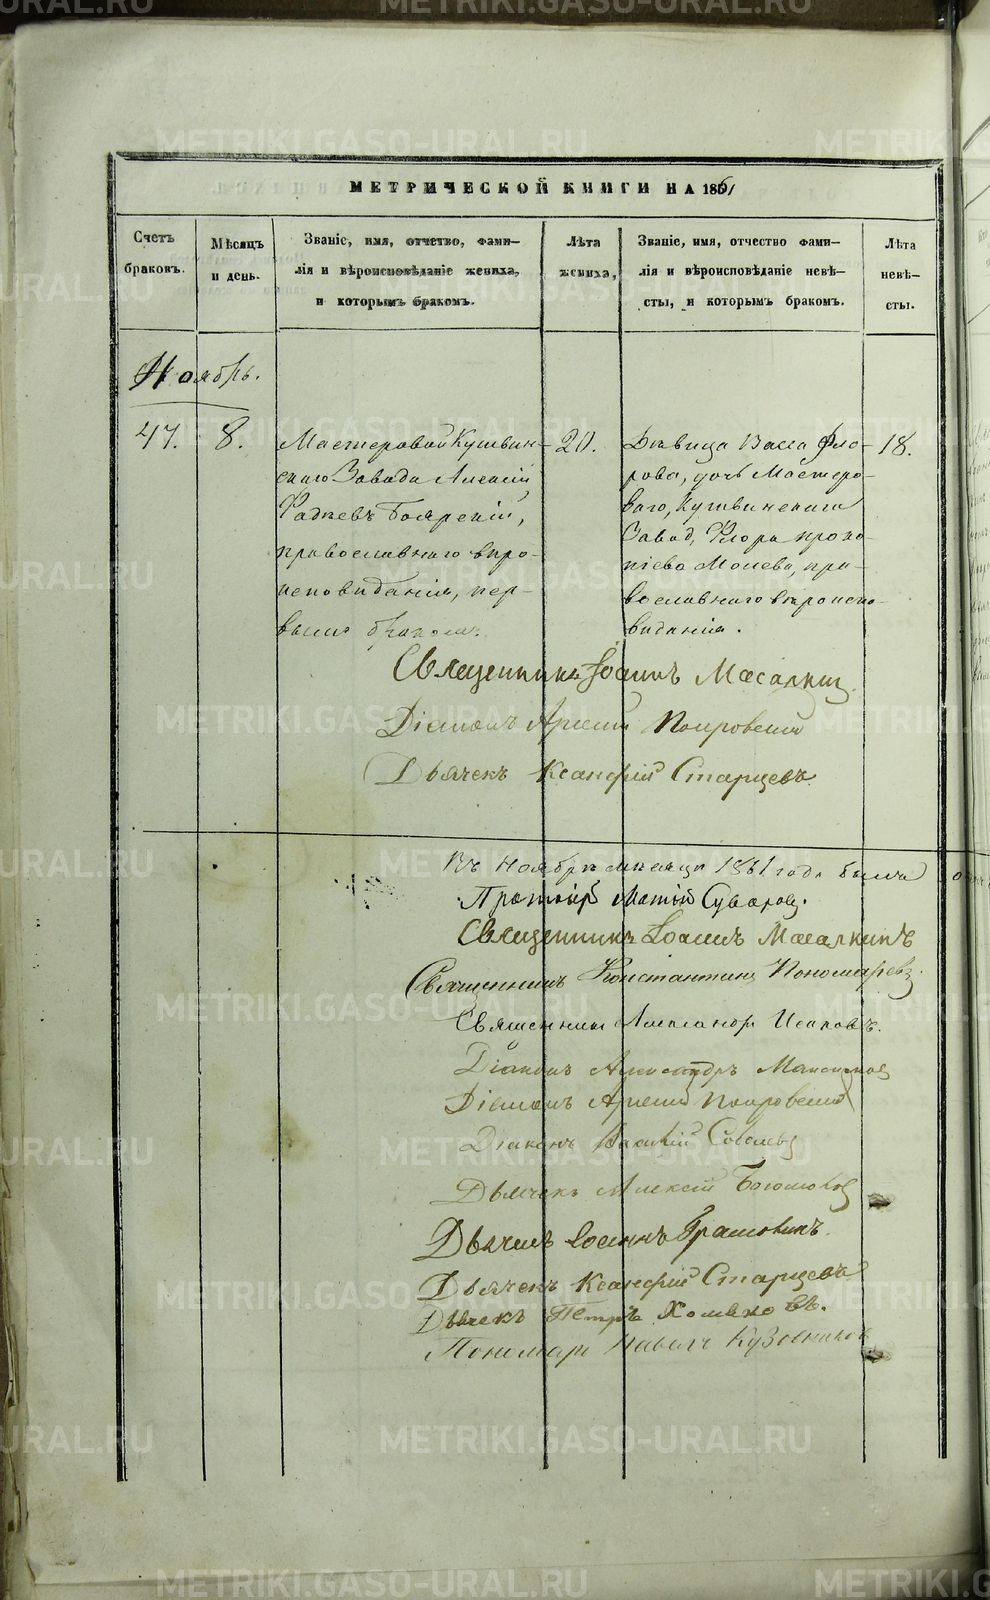 МЕТРИЧЕСКОЙ КНИГИ НА 1861
Счетъ браковъ.
Мѣсяцъ и день.
Званіе, имя, отчетво, фами-
лія и вѣроисповѣданіе жениха,
и которымъ бракомъ.
Лѣта жениха,
Званіе, имя, отчество фами-
лія и вѣроисповѣданіе невѣ-
сты, и которымъ бракомъ.
Лѣта невѣ-
сты.
Ноябрь.
47.
8.
Мастеровой Кушвин-
скаго Завода Алексій
Фадѣевъ Боярскій,
православнаго вѣро-
исповѣданія, пер-
вымъ бракомъ.
20.
Дѣвица Васса Фло-
рова, дочь Мастеро-
ваго, Кушвинскаго
Завод, Флора Проко-
піева Молева, пра-
вославнаго вѣроиспо-
вѣданія.
18.
Священникъ Іоаннъ Масалкин
Діаконъ Арсеній Покровскій
Дьячекъ Ксанфій Старцевъ
Въ Ноябрѣ мѣсяцѣ 1861 года было
Протоіер Суворов.
Священникъ Іоаннъ Масалкинъ
Священникъ Константинъ Пономаревъ.
Священникъ Александр Исаковъ.
Діаконъ Александръ Максимов
Діаконъ Арсеній Покровскій
Діаконъ Василій Соболевъ
Дьячекъ Алексій Богомолов
Дьячекъ Іосифъ
Дьячекъ Ксанфій Старцевъ
Дьячекъ Петръ Хомяковъ.
Пономарь Павелъ Кузовников
METRIKI.GASO-URAL.RU